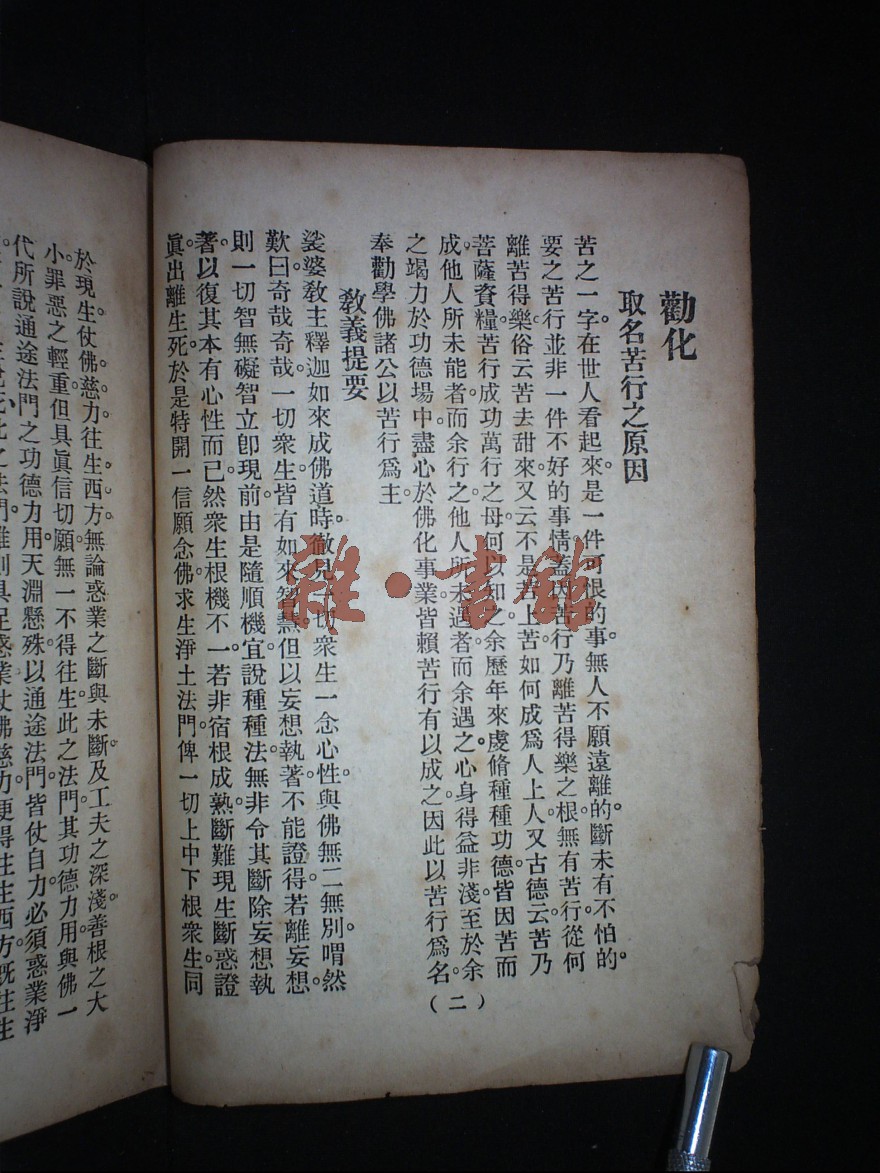 勸化
取名苦行之原因
苦之一字。在世人看起來。是一件可恨的事。無人不願遠離的。斷未有不怕的。
要之苦行並非一件不好的事情。蓋因苦行乃離苦得樂之根。無有苦行。從何
離苦得樂。俗云苦去甜來。又云不是苦上苦。如何成爲人上人。又古德云。苦乃
菩薩資糧。苦行成功萬行之母。何以知之。余歷年來虔脩種種功德。皆因苦而
成。他人所未能者。而余行之。他人所未遇者。而余遇之。心身得益非淺。至於余
之竭力於功德場中。盡心於佛化事業。皆賴苦行有以成之。因此以苦行爲名。
奉勸學佛諸公。以苦行爲主。
(二)
敎義提要
娑婆敎主釋迦如來成佛道時。徹見一切衆生一念心性。與佛無二無別。喟然
歎曰。奇哉奇哉。一切衆生皆有如來智慧。但以妄想執著。不能證得。若離妄想。
則一切智無礙智立卽現前。由是隨順機宜。說種種法。無非令其斷除妄想執
著。以復其本有心性而已。然衆生根機不一。若非宿根成熟。斷難現生斷惑證
眞。出離生死。於是特開一信願念佛求生淨土法門。俾一切上中下根衆生。同
於現生仗佛慈力。往生西方。無論惑業之斷與未斷。及工夫之深淺。善根之大
小。罪惡之輕重。但具眞信切願。無一不得往生。此之法門。其功德力用。與佛一
代所說通途法門之功德力用。天淵懸殊。以通途法門。皆仗自力。必須惑業淨
此之法門。雖則具足惑業。仗佛慈力。便得往生西方。旣往生
雜·書館